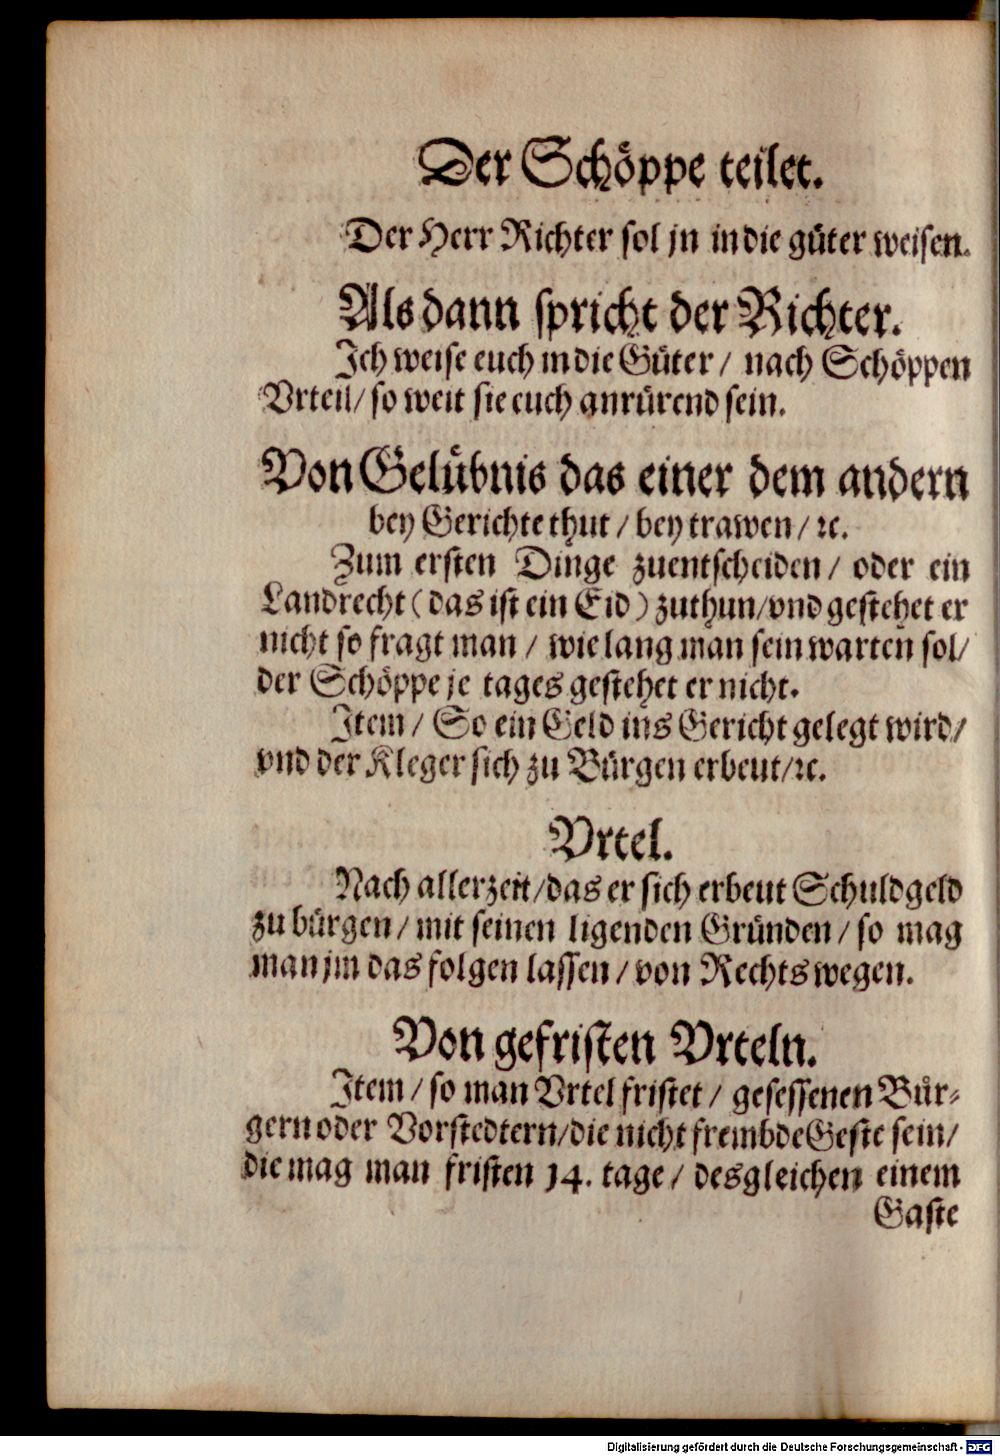 Der Schöppe teilet.
Der Herr Richter sol jn in die güter weisen.
Als dann spricht der Richter.
Ich weise euch in die Güter / nach Schöppen
Vrteil / so weit sie euch anrürend sein.
Von Gelübnis das einer dem andern
bey Gerichte thut / bey trawen / ꝛc.
Zum ersten Dinge zuentscheiden / oder ein
Landrecht (das ist ein Eid) zuthun / vnd gestehet er
nicht so fragt man / wie lang man sein warten sol /
der Schöppe je tages gestehet er nicht.
Item / So ein Geld ins Gericht gelegt wird /
vnd der Kleger sich zu Bürgen erbeut / ꝛc.
Vrtel.
Nach aller zeit / das er sich erbeut Schuldgeld
zu bürgen / mit seinen ligenden Gründen / so mag
man jm das folgen lassen / von Rechts wegen.
Von gefristen Vrteln.
Item / so man Vrtel fristet / gesessenen Bür-
gern oder Vorstedtern / die nicht frembde Geste sein /
die mag man fristen 14. tage / desgleichen einem
Gaste
Digitalisierung gefördert durch die Deutsche Forschungsgemeinschaft - DFG